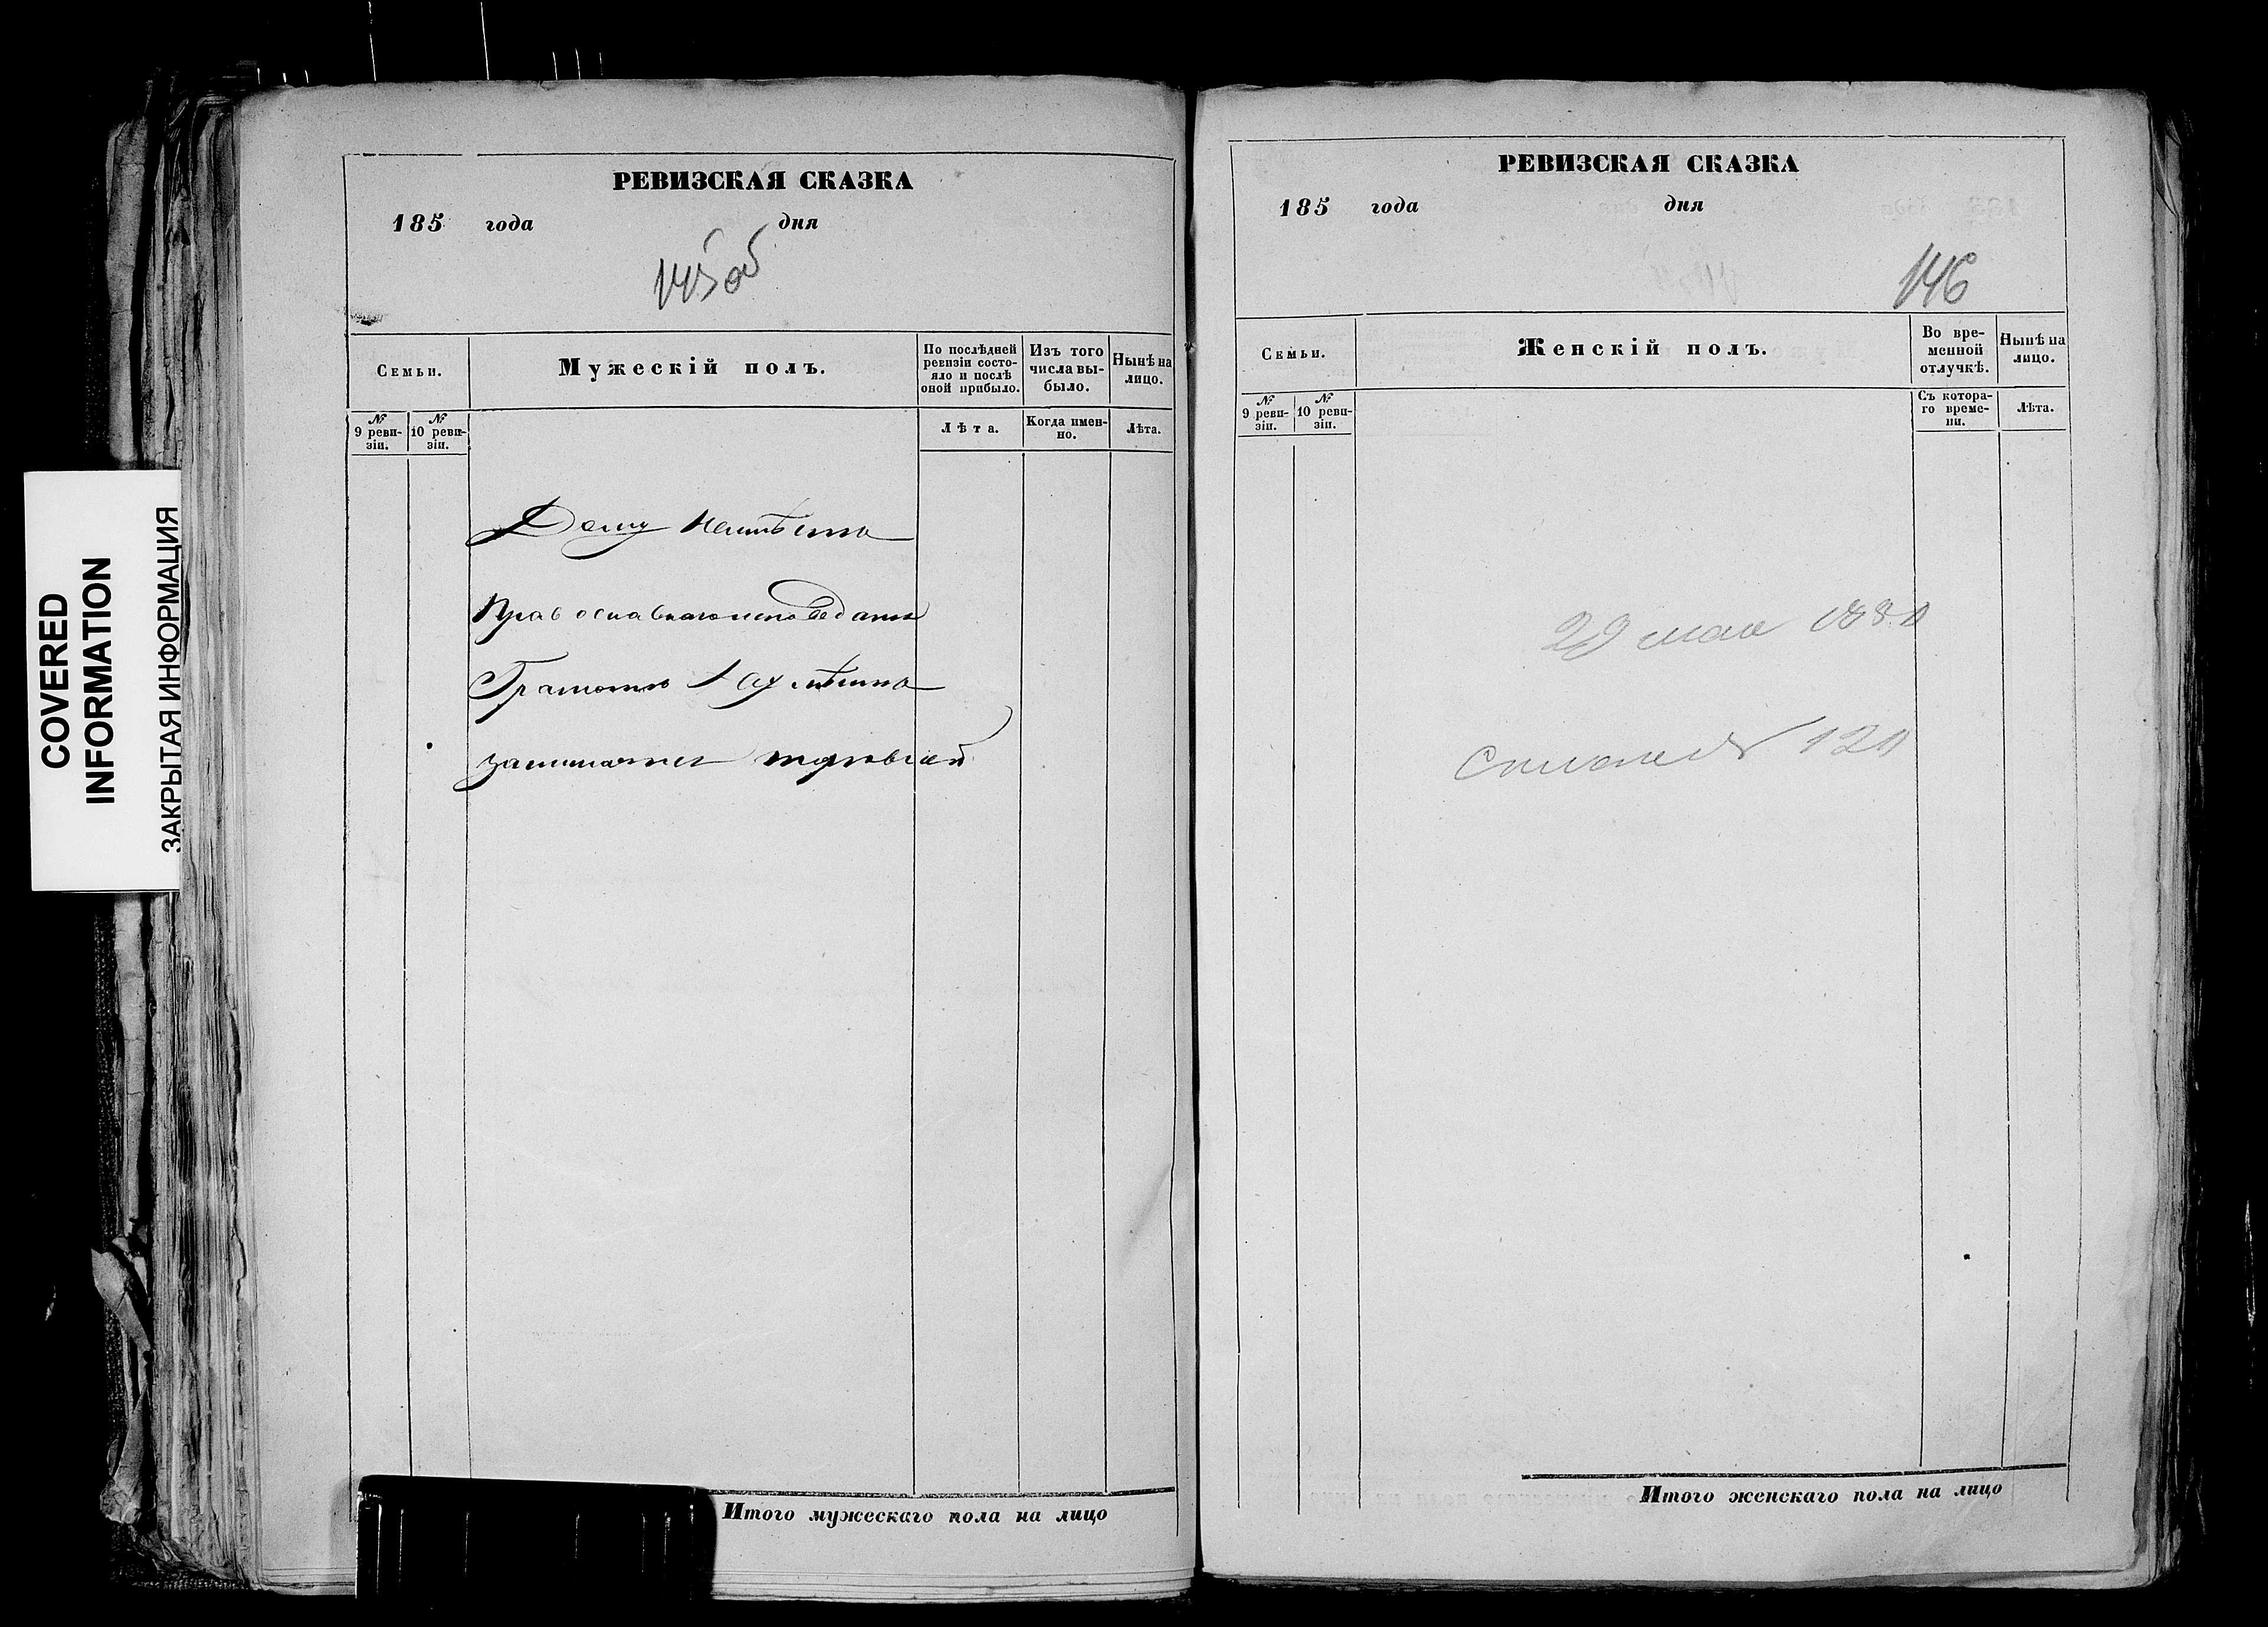 COVERED
INFORMATION
ЗАКРЫТАЯ ИНФОРМАЦИЯ
РЕВИЗСКАЯ СКАЗКА
185 года дня
145 об
Семьи.
Мужескій полъ.
По послѣдней ревизіи состояло и послѣ оной прибыло.
Изъ того числа выбыло.
Нынѣ на лицо.
№ 9 ревизіи.
№ 10 ревизіи.
Лѣта.
Когда именно.
Лѣта.
Дому неимѣетъ
Православнаго исповеданія
Грамотѣ неумѣетъ
занимается торговлей
Итого мужескаго пола на лицо
РЕВИЗСКАЯ СКАЗКА
185 года дня
146
Семьи.
Женскій полъ.
Во временной отлучкѣ.
Нынѣ на лицо.
№ 9 ревизіи.
№ 10 ревизіи.
Съ котораго времени.
Лѣта.
29 мая
Итого женскаго пола на лицо